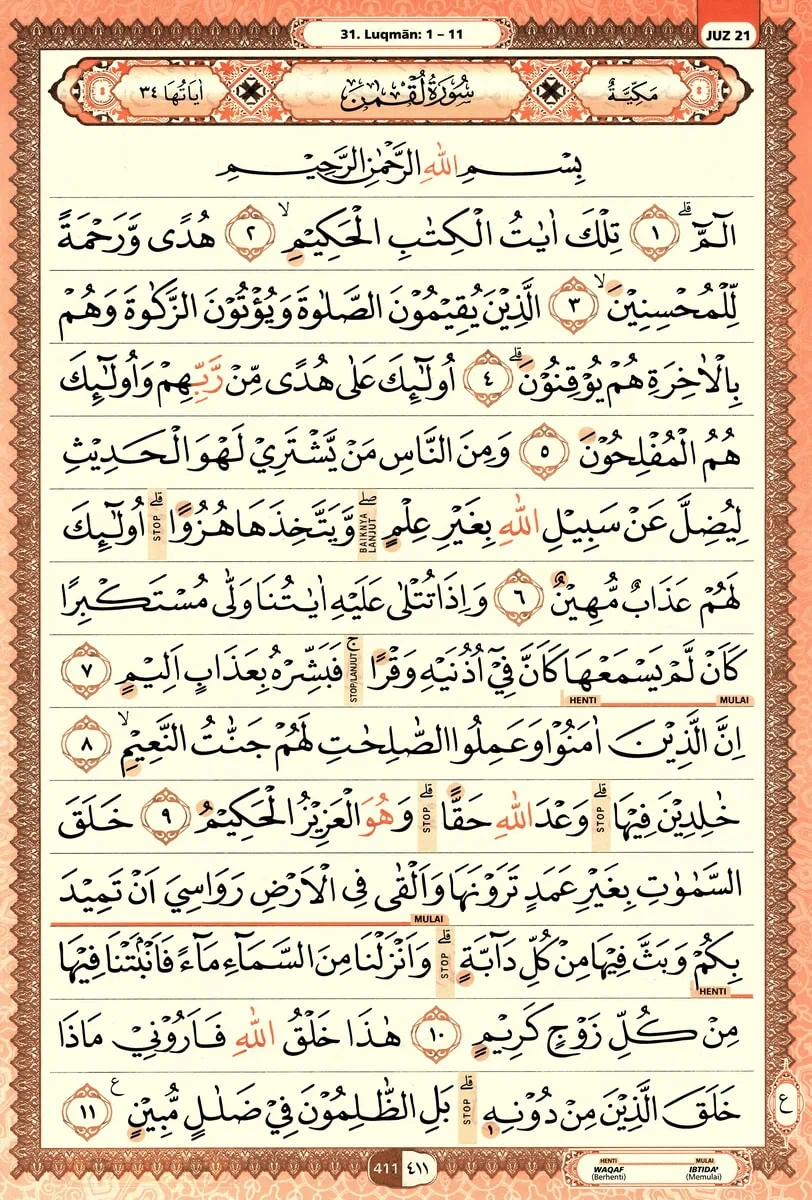 31. Luqmān: 1 – 11
JUZ 21
مَكِّيَّةٌ سُوْرَةُ لُقْمٰنَ اٰيَاتُهَا ٣٤
بِسْمِ اللّٰهِ الرَّحْمٰنِ الرَّحِيْمِ
الۤمّۤ ۗ ١ تِلْكَ اٰيٰتُ الْكِتٰبِ الْحَكِيْمِۙ ٢ هُدًى وَّرَحْمَةً
لِّلْمُحْسِنِيْنَۙ ٣ الَّذِيْنَ يُقِيْمُوْنَ الصَّلٰوةَ وَيُؤْتُوْنَ الزَّكٰوةَ وَهُمْ
بِالْاٰخِرَةِ هُمْ يُوْقِنُوْنَۗ ٤ اُولٰۤىِٕكَ عَلٰى هُدًى مِّنْ رَّبِّهِمْ وَاُولٰۤىِٕكَ
هُمُ الْمُفْلِحُوْنَ ٥ وَمِنَ النَّاسِ مَنْ يَّشْتَرِيْ لَهْوَ الْحَدِيْثِ
لِيُضِلَّ عَنْ سَبِيْلِ اللّٰهِ بِغَيْرِ عِلْمٍۖ BAIKNYA LANJUT وَّيَتَّخِذَهَا هُزُوًاۗ STOP اُولٰۤىِٕكَ
لَهُمْ عَذَابٌ مُّهِيْنٌ ٦ وَاِذَا تُتْلٰى عَلَيْهِ اٰيٰتُنَا وَلّٰى مُسْتَكْبِرًا
كَاَنْ لَّمْ يَسْمَعْهَا كَاَنَّ فِيْٓ اُذُنَيْهِ وَقْرًاۚ STOP/LANJUT فَبَشِّرْهُ بِعَذَابٍ اَلِيْمٍ ٧
MULAI HENTI
اِنَّ الَّذِيْنَ اٰمَنُوْا وَعَمِلُوا الصّٰلِحٰتِ لَهُمْ جَنّٰتُ النَّعِيْمِۙ ٨
خٰلِدِيْنَ فِيْهَاۗ STOP وَعْدَ اللّٰهِ حَقًّاۗ STOP وَهُوَ الْعَزِيْزُ الْحَكِيْمُ ٩ خَلَقَ
السَّمٰوٰتِ بِغَيْرِ عَمَدٍ تَرَوْنَهَا وَاَلْقٰى فِى الْاَرْضِ رَوَاسِيَ اَنْ تَمِيْدَ
MULAI
بِكُمْ وَبَثَّ فِيْهَا مِنْ كُلِّ دَاۤبَّةٍۗ STOP وَاَنْزَلْنَا مِنَ السَّمَاۤءِ مَاۤءً فَاَنْۢبَتْنَا فِيْهَا
HENTI
مِنْ كُلِّ زَوْجٍ كَرِيْمٍ ١٠ هٰذَا خَلْقُ اللّٰهِ فَاَرُوْنِيْ مَاذَا
خَلَقَ الَّذِيْنَ مِنْ دُوْنِهٖۗ STOP بَلِ الظّٰلِمُوْنَ فِيْ ضَلٰلٍ مُّبِيْنٍ ࣖ ١١
ع
411 ٤١١
HENTI MULAI
WAQAF IBTIDA'
(Berhenti) (Memulai)